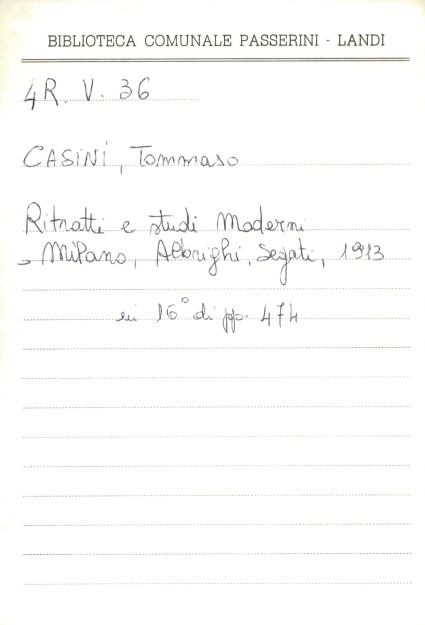 BIBLIOTECA COMUNALE PASSERINI - LANDI
4R. V. 36
CASINI, Tommaso
Ritratti e studi Moderni
- Milano, Albrighi, Segati, 1913
in 16° di pp. 474